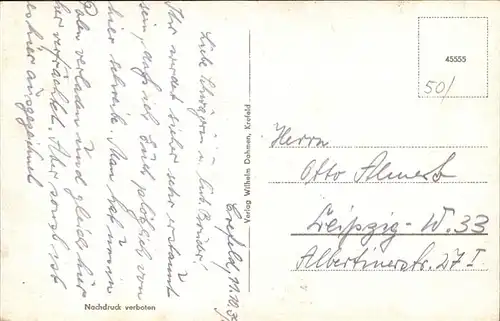 Crefeld, 11.10.3
Liebe Schwägerin u. lieb. Bruder!
Ihr werdet sicher sehr erstaunt
sein, daß ich Euch plötzlich von
hier schreibe. Man hat uns in
verladen und gleich hier
her verfrachtet. Aber sonst ist
es hier ausgezeichnet
Verlag Wilhelm Dahmen, Krefeld
Nachdruck verboten
45555
50/
Herrn
Otto
Leipzig - W. 33
Albertinerstr. 27 I